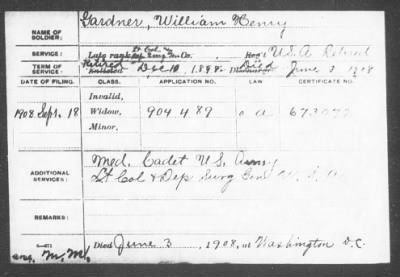 Gardner, William Henry
NAME OF SOLDIER:
Lt Col &
SERVICE: Late rank, Dep Surg Gen Co. Reg't U.S.A Retired
TERM OF SERVICE: Retired Enlisted Dec 10, 1898. Died Discharged June 3 1908
DATE OF FILING. CLASS. APPLICATION NO. LAW CERTIFICATE NO.
Invalid,
1908 Sept. 18 Widow, 904489
Minor,
ADDITIONAL SERVICES: Med. Cadet U.S. Army
Lt Col & Dep Surg Genl U.S.A.
REMARKS:
Died June 3, 1908, at Washington D.C.